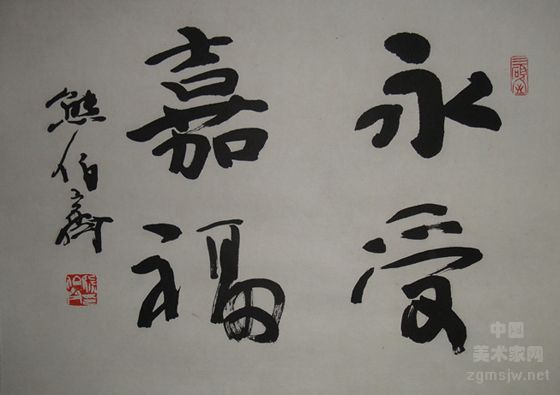 永受
嘉福
熊伯齊
中国
美术家网
zgmsjw.net